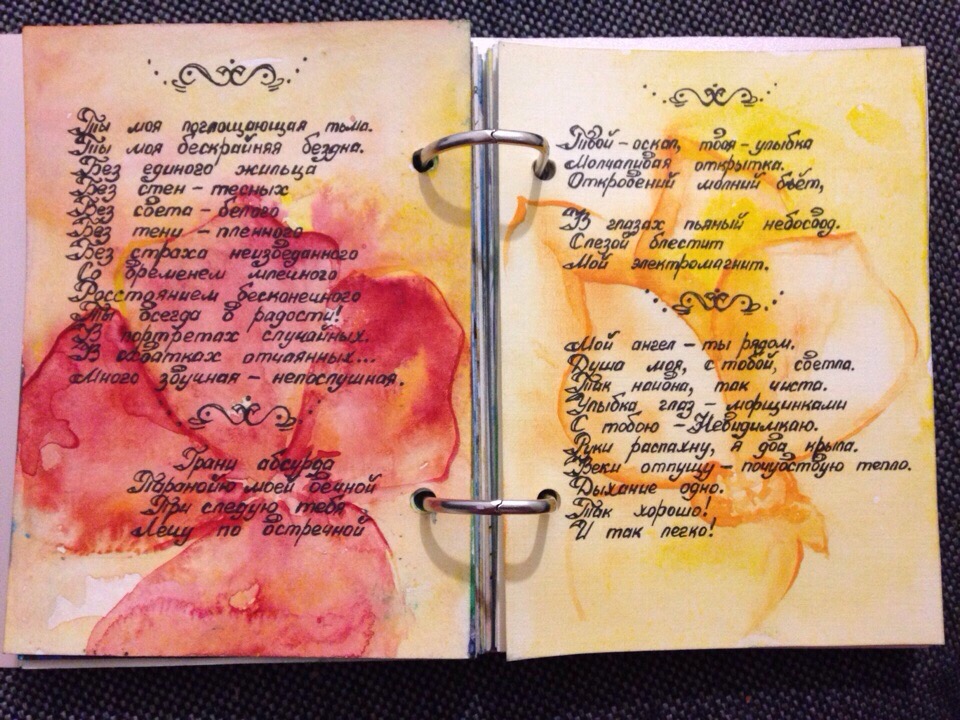 Ты моя поглощающая тьма.
Ты моя бескрайняя бездна.
Без единого жильца
Без стен - тесных
Без света - белого
Без тени - пленного
Без страха неизведанного
Со временем млейного
Расстоянием бесконечного
Ты всегда в радости!
В портретах случайных.
В охватках отчаянных...
Много звучная - непослушная.
Грани абсурда
Паранойю моей вечной
При следую тебя
Лечу по встречной
Твой - оскал, твоя - улыбка
Молчаливая открытка.
Откровений молний бьёт,
В глазах пьяный небосвод.
Слезой блестит
Мой электромагнит.
Мой ангел - ты рядом.
Душа моя, с тобой, светла.
Так наивна, так чиста.
Улыбка глаз - морщинками
С тобою - Невидимкаю.
Руки распахну, я два крыла.
Веки отпущу - почувствую тепло.
Дыхание одно.
Так хорошо!
И так легко!